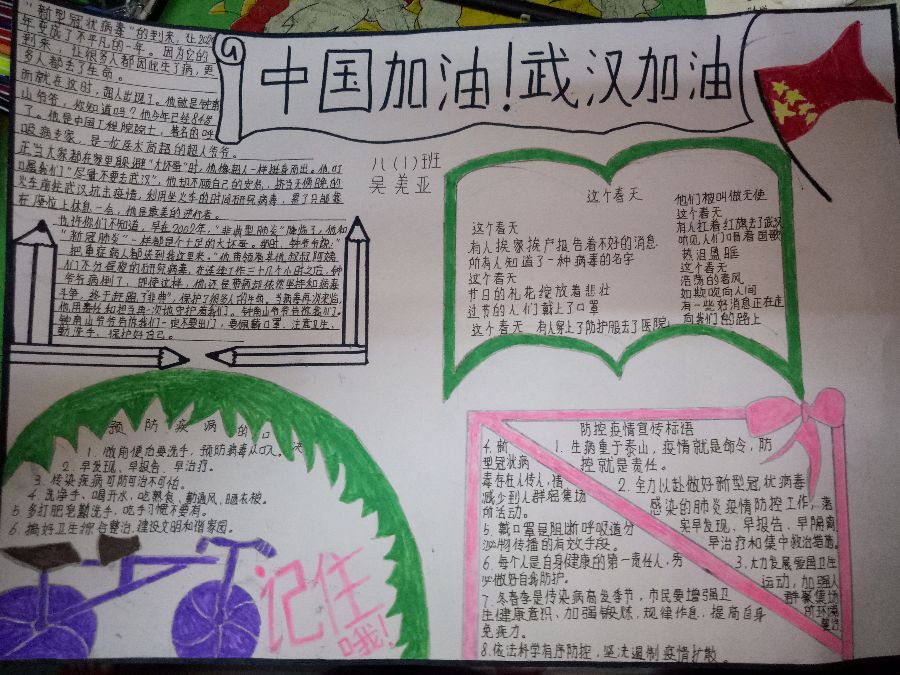 中国加油!武汉加油
八(1)班
吴美亚
"新型冠状病毒"的到来,让2020
年变成了不平凡的一年。因为它的
到来,让很多人都因此生了病,更
多人都丢了生命。
而就在这时,超人出现了。他就是钟南
山爷爷,你知道吗?他今年已经84岁
了。他是中国工程院院士,著名的呼
吸病专家,是一位医术高超的超人爷爷。
正当大家都在家里躲避"大坏蛋"时,他像超人一样挺身而出。他叮
嘱我们"尽量不要去武汉",他却不顾自己的安危,搭当天傍晚的
火车前往武汉抗击疫情,利用坐火车的时间研究病毒,累了只能靠
在座位上休息一会,他是最美的逆行者。
也许你们不知道,早在2002年,"非典型肺炎"降临了,他和
"新冠肺炎"一样都是个十足的大坏蛋。那时,钟爷爷说:"
把重症病人都送到我这里来。"他带领着其他叔叔阿姨
们不分昼夜的研究病毒,在连续工作三十几个小时之后,钟
爷爷病倒了,即使这样,他还是带病却依然坚持和病毒
斗争,终于赶跑了"非典",保护了很多人的生命。当病毒再次来临,
他用责任和担当再一次守护着我们。钟南山爷爷告诉我们
一定不要出门,要佩戴口罩,注意卫生,
勤洗手,保护好自己。
这个春天
这个春天
有人挨家挨户报告着不好的消息
所有人知道了一种病毒的名字
这个春天
节日的礼花绽放着悲壮
过节的人们戴上了口罩
这个春天 有人穿上了防护服去了医院
他们都叫做天使
这个春天
有人扛着红旗去了武汉
听见人们唱着国歌
热泪盈眶
这个春天
浩荡的春风
如歌吹向人间
有一些好消息正在走
向我们的路上
预防疾病的口
诀
1.做前便后要洗手,预防病毒从口入。
2.早发现、早报告、早治疗。
3.传染疾病可防可治不可怕。
4.洗净手、喝开水、吃熟食、勤通风、晒衣被。
5.多打肥皂勤洗手,吃手习惯不要有。
6.搞好卫生综合整治,建设文明和谐家园。
记住
哦!
防控疫情宣传标语
1.生病重于泰山,疫情就是命令,防
控就是责任。
2.全力以赴做好新型冠状病毒
感染的肺炎疫情防控工作,落
实早发现、早报告、早隔离、
早治疗和集中救治措施。
3.大力发展爱国卫生
运动,加强人
群聚集场
所环境
整治
4.新
型冠状病
毒存在人传人,请
减少到人群密集场
所活动。
5.戴口罩是阻断呼吸道分
泌物传播的有效手段。
6.每个人是自身健康的第一责任人,务
必做好自身防护。
7.冬春季是传染病高发季节,市民要增强卫
生健康意识、加强锻炼,规律作息,提高自身
免疫力。
8.依法科学有序防控,坚决遏制疫情扩散。